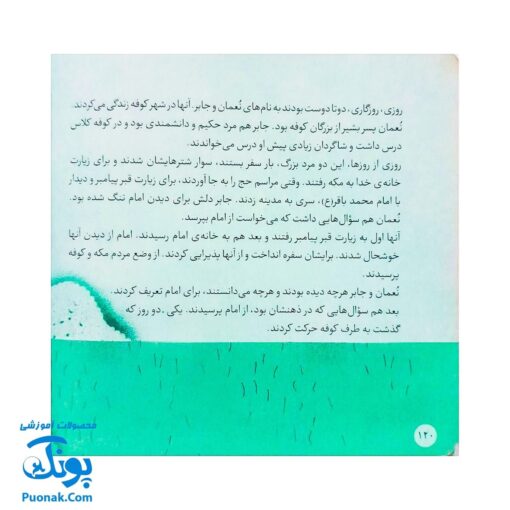 روزی، روزگاری، دو تا دوست بودند به نام‌های نُعمان و جابر. آنها در شهر کوفه زندگی می‌کردند.
نُعمان پسر بشیر از بزرگان کوفه بود. جابر هم مرد حکیم و دانشمندی بود و در کوفه کلاس
درس داشت و شاگردان زیادی پیش او درس می‌خواندند.
روزی از روزها، این دو مرد بزرگ، بار سفر بستند، سوار شترهایشان شدند و برای زیارت
خانه‌ی خدا به مکه رفتند. وقتی مراسم حج را به جا آوردند، برای زیارت قبر پیامبر و دیدار
با امام محمد باقر(ع)، سری به مدینه زدند. جابر دلش برای دیدن امام تنگ شده بود.
نُعمان هم سؤال‌هایی داشت که می‌خواست از امام بپرسد.
آنها اول به زیارت قبر پیامبر رفتند و بعد هم به خانه‌ی امام رسیدند. امام از دیدن آنها
خوشحال شدند. برایشان سفره انداخت و از آنها پذیرایی کردند. از وضع مردم مکه و کوفه
پرسیدند.
نُعمان و جابر هرچه دیده بودند و هرچه می‌دانستند، برای امام تعریف کردند.
بعد هم سؤال‌هایی که در ذهنشان بود، از امام پرسیدند. یکی ـ دو روز که
گذشت به طرف کوفه حرکت کردند.
۱۲۰
محصولات آموزشی
پونک
Puonak.Com